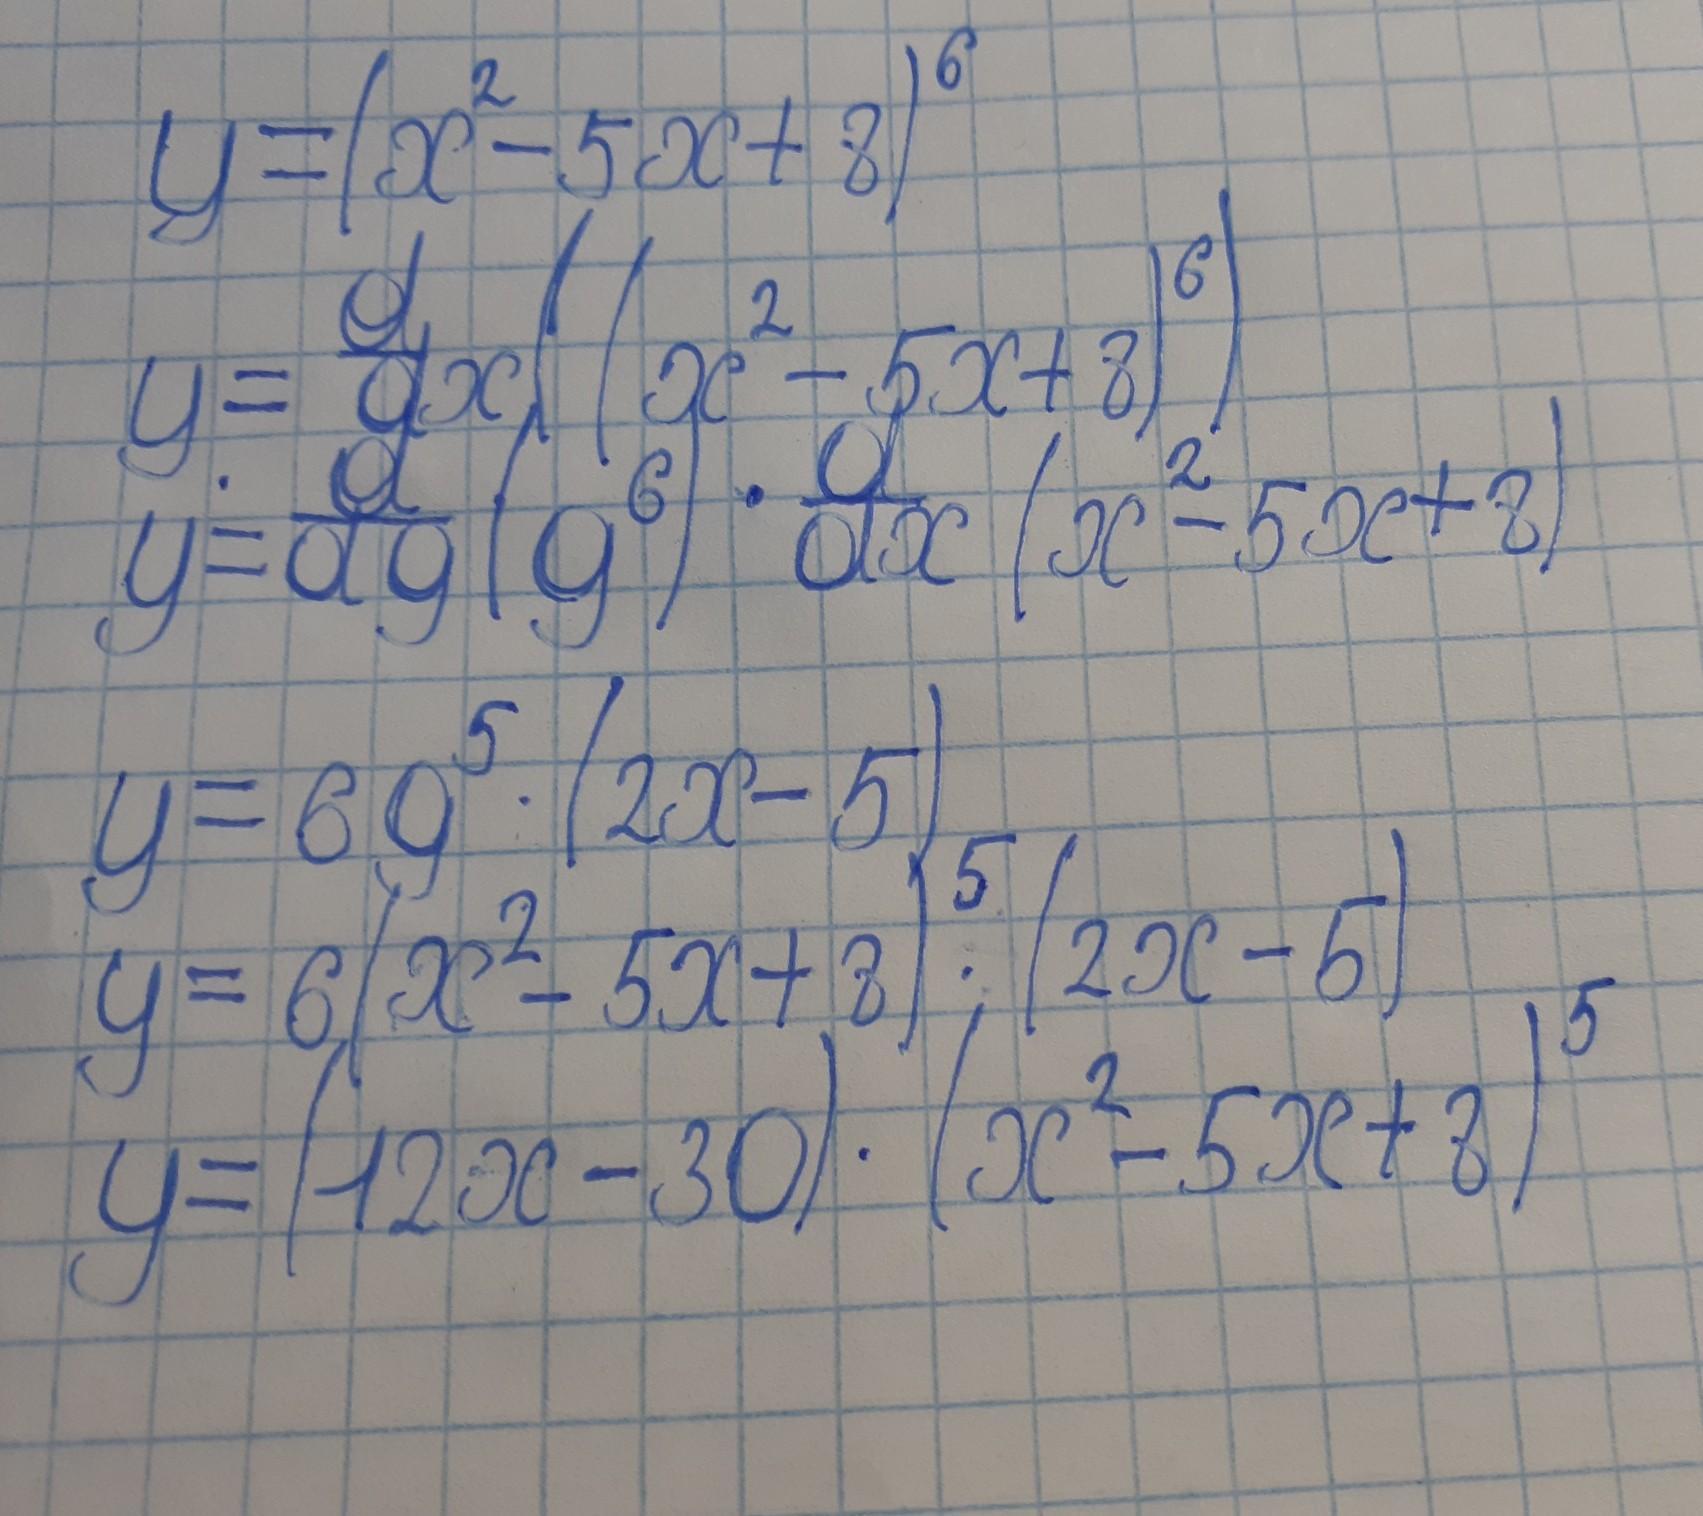 y=(x²-5x+8)⁶
y=d/dx((x²-5x+8)⁶)
y=d/dg(g⁶)·d/dx(x²-5x+8)
y=6g⁵·(2x-5)
y=6(x²-5x+8)⁵·(2x-5)
y=(12x-30)·(x²-5x+8)⁵